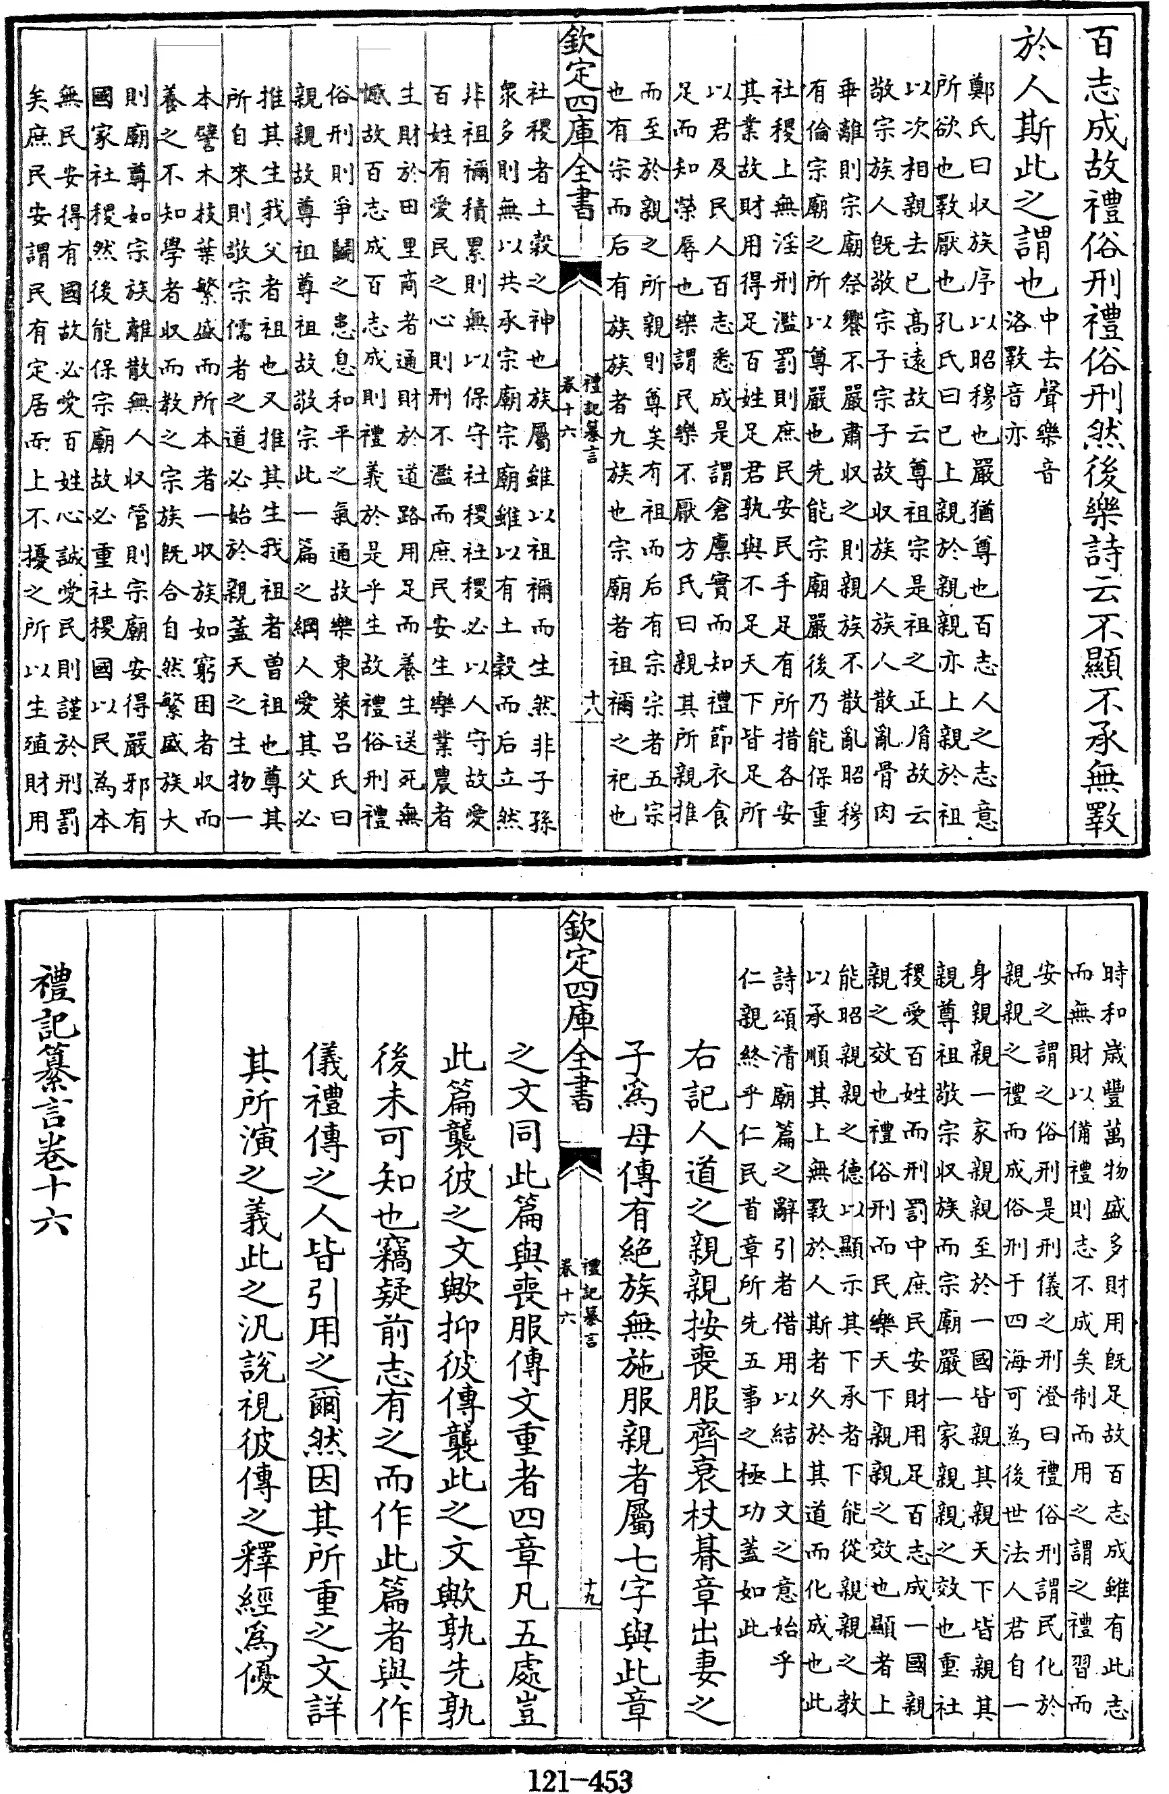 百志成故禮俗刑禮俗刑然後樂詩云不顯不承無斁
於人斯此之謂也
中去聲樂音
洛斁音亦
鄭氏曰收族序以昭穆也嚴猶尊也百志人之志意
所欲也斁厭也孔氏曰已上親於親親亦上親於祖
以次相親去已高遠故云尊祖宗是祖之正𦙍故云
敬宗族人既敬宗子宗子故收族人族人散亂骨肉
乖離則宗廟祭饗不嚴肅收之則親族不散亂昭穆
有倫宗廟之所以尊嚴也先能宗廟嚴後乃能保重
社稷上無淫刑濫罰則庶民安民手足有所措各安
其業故財用得足百姓足君孰與不足天下皆足所
以君及民人百志悉成是謂倉廩實而知禮節衣食
足而知榮辱也樂謂民樂不厭方氏曰親其所親推
而至於親之所親則尊矣有祖而后有宗宗者五宗
也有宗而后有族族者九族也宗廟者祖禰之祀也
欽定四庫全書
禮記纂言
卷十六
十八
社稷者土穀之神也族屬雖以祖禰而生然非子孫
衆多則無以共承宗廟宗廟雖以有土穀而后立然
非祖禰積累則無以保守社稷社稷必以人守故愛
百姓有愛民之心則刑不濫而庶民安生樂業農者
生財於田里商者通財於道路用足而養生送死無
憾故百志成百志成則禮義於是乎生故禮俗刑禮
俗刑則爭鬭之患息和平之氣通故樂東萊呂氏曰
親親故尊祖尊祖故敬宗此一篇之綱人愛其父必
推其生我父者祖也又推其生我祖者曾祖也尊其
所自來則敬宗儒者之道必始於親蓋天之生物一
本譬木枝葉繁盛而所本者一收族如窮困者收而
養之不知學者收而教之宗族既合自然繁盛族大
則廟尊如宗族離散無人收管則宗廟安得嚴邪有
國家社稷然後能保宗廟故必重社稷國以民為本
無民安得有國故必愛百姓心誠愛民則謹於刑罰
矣庶民安謂民有定居而上不擾之所以生殖財用
時和歲豐萬物盛多財用既足故百志成雖有此志
而無財以備禮則志不成矣制而用之謂之禮習而
安之謂之俗刑是刑儀之刑澄曰禮俗刑謂民化於
親親之禮而成俗刑于四海可為後世法人君自一
身親親一家親親至於一國皆親其親天下皆親其
親尊祖敬宗收族而宗廟嚴一家親親之效也重社
稷愛百姓而刑罰中庶民安財用足百志成一國親
親之效也禮俗刑而民樂天下親親之效也顯者上
能昭親親之德以顯示其下承者下能從親親之教
以承順其上無斁於人斯者久於其道而化成也此
詩頌清廟篇之辭引者借用以結上文之意始乎
仁親終乎仁民首章所先五事之極功蓋如此
右記人道之親親按喪服齊衰杖朞章出妻之
子為母傳有絕族無施服親者屬七字與此章
欽定四庫全書
禮記纂言
卷十六
十九
之文同此篇與喪服傳文重者四章凡五處豈
此篇襲彼之文歟抑彼傳襲此之文歟孰先孰
後未可知也竊疑前志有之而作此篇者與作
儀禮傳之人皆引用之爾然因其所重之文詳
其所演之義此之汎說視彼傳之釋經為優
禮記纂言卷十六
121-453